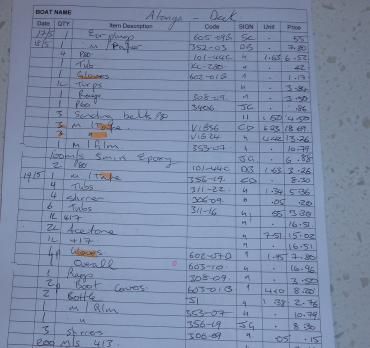 BOAT NAME Atonga - Deck
DATE QTY Item Description Code SIGN Unit Price
17/5 1 Earplugs 605-095 SC .55
18/5 1 m/Paper 352-03 DB 7.80
4 P80 101-44C 1.63 6.52
1 Tub KL-280 " .42
1 Gloves 602-01G " 1.17
1L Turps " 3.84
1 Rags 308-09 " 3.50
1 P80 3406 SG .86
3 Sanding belts P80 11 1.50 4.50
3 m/Tape V1856 CD 18.09
3 " V1624 " 4.42 13.26
1 m/Rlm 353-07 " 10.79
100mls 5min Epoxy SG 6.88
2 P80 101-44C DB 1.63 3.26
19/5 1 m/Tape 356-19 CD 8.30
4 Tubs 311-22 " 1.34 5.36
4 stirrer 306-09 " .05 .20
6 Tubs 311-16 " .55 3.30
1L 417 " 16.51
2L Acetone " 7.51 15.02
1L 417 " 16.51
4p Gloves 602-07D " 1.95 7.80
1 Overall 603-10 " 16.96
1 Rags 308-09 " 3.50
2p Boot Covers 603-01B " 4.10 8.20
2 Bottle " 1.38 2.76
1 m/Rlm 353-07 " 10.79
1 " 356-19 SG 8.30
3 stirrers 306-09 " .05 .15
200 mls 413